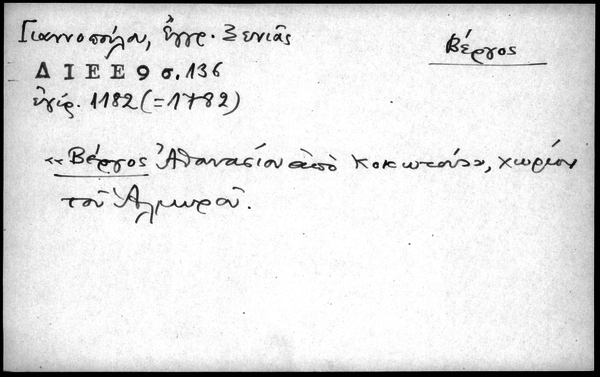 Γιαννοπούλου, ἔγγρ. Ξενιᾶς
Βέργος
Δ Ι Ε Ε 9 σ. 136
ἐγίρ. 1182 (=1782)
«Βέργος Ἀθανασίου ἀπὸ Κοκωτούς», χωρίον
τοῦ Ἁλμυροῦ.